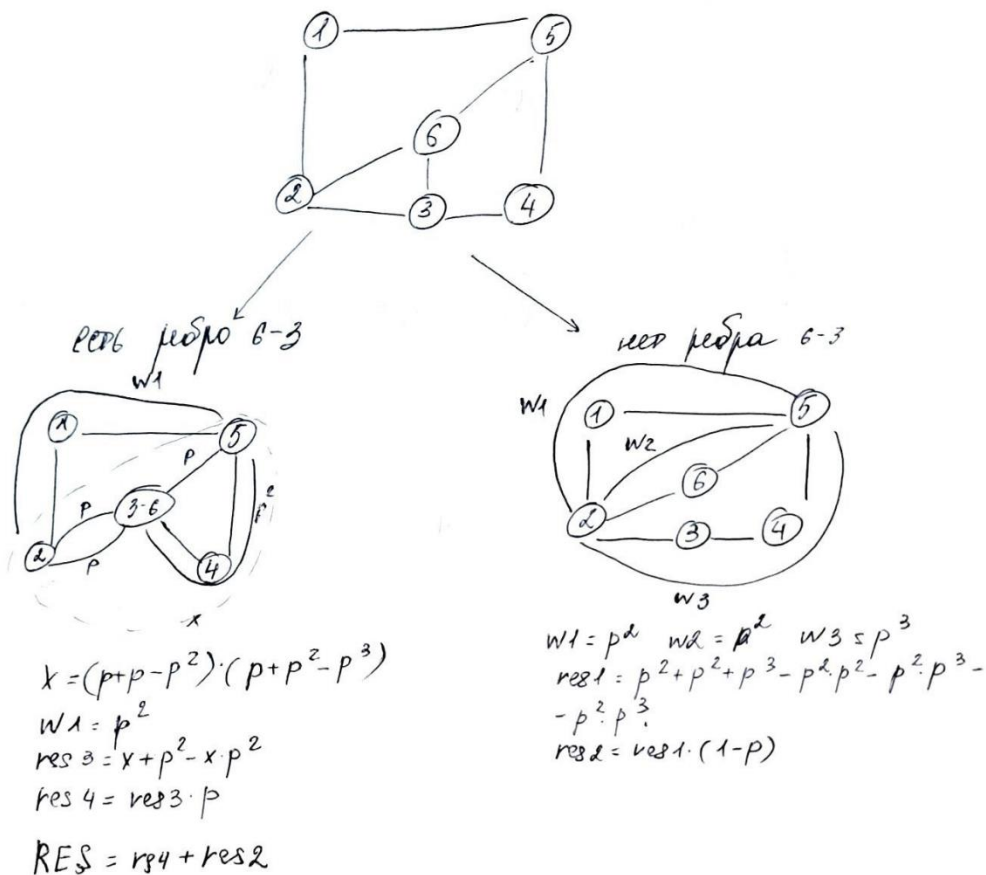 1 5
6
2 3 4
есть ребро 6-3
нет ребра 6-3
w1
1 5
p
3-6
p p²
2 p 4
x
x = (p+p-p²)·(p+p²-p³)
w1 = p²
res3 = x+p²-x·p²
res4 = res3·p
RES = rs4 + res2
w1 1 5
w2
6
2 3 4
w3
w1 = p² w2 = p² w3 = p³
res1 = p²+p²+p³-p²·p²-p²·p³-
-p²·p³.
res2 = res1·(1-p)